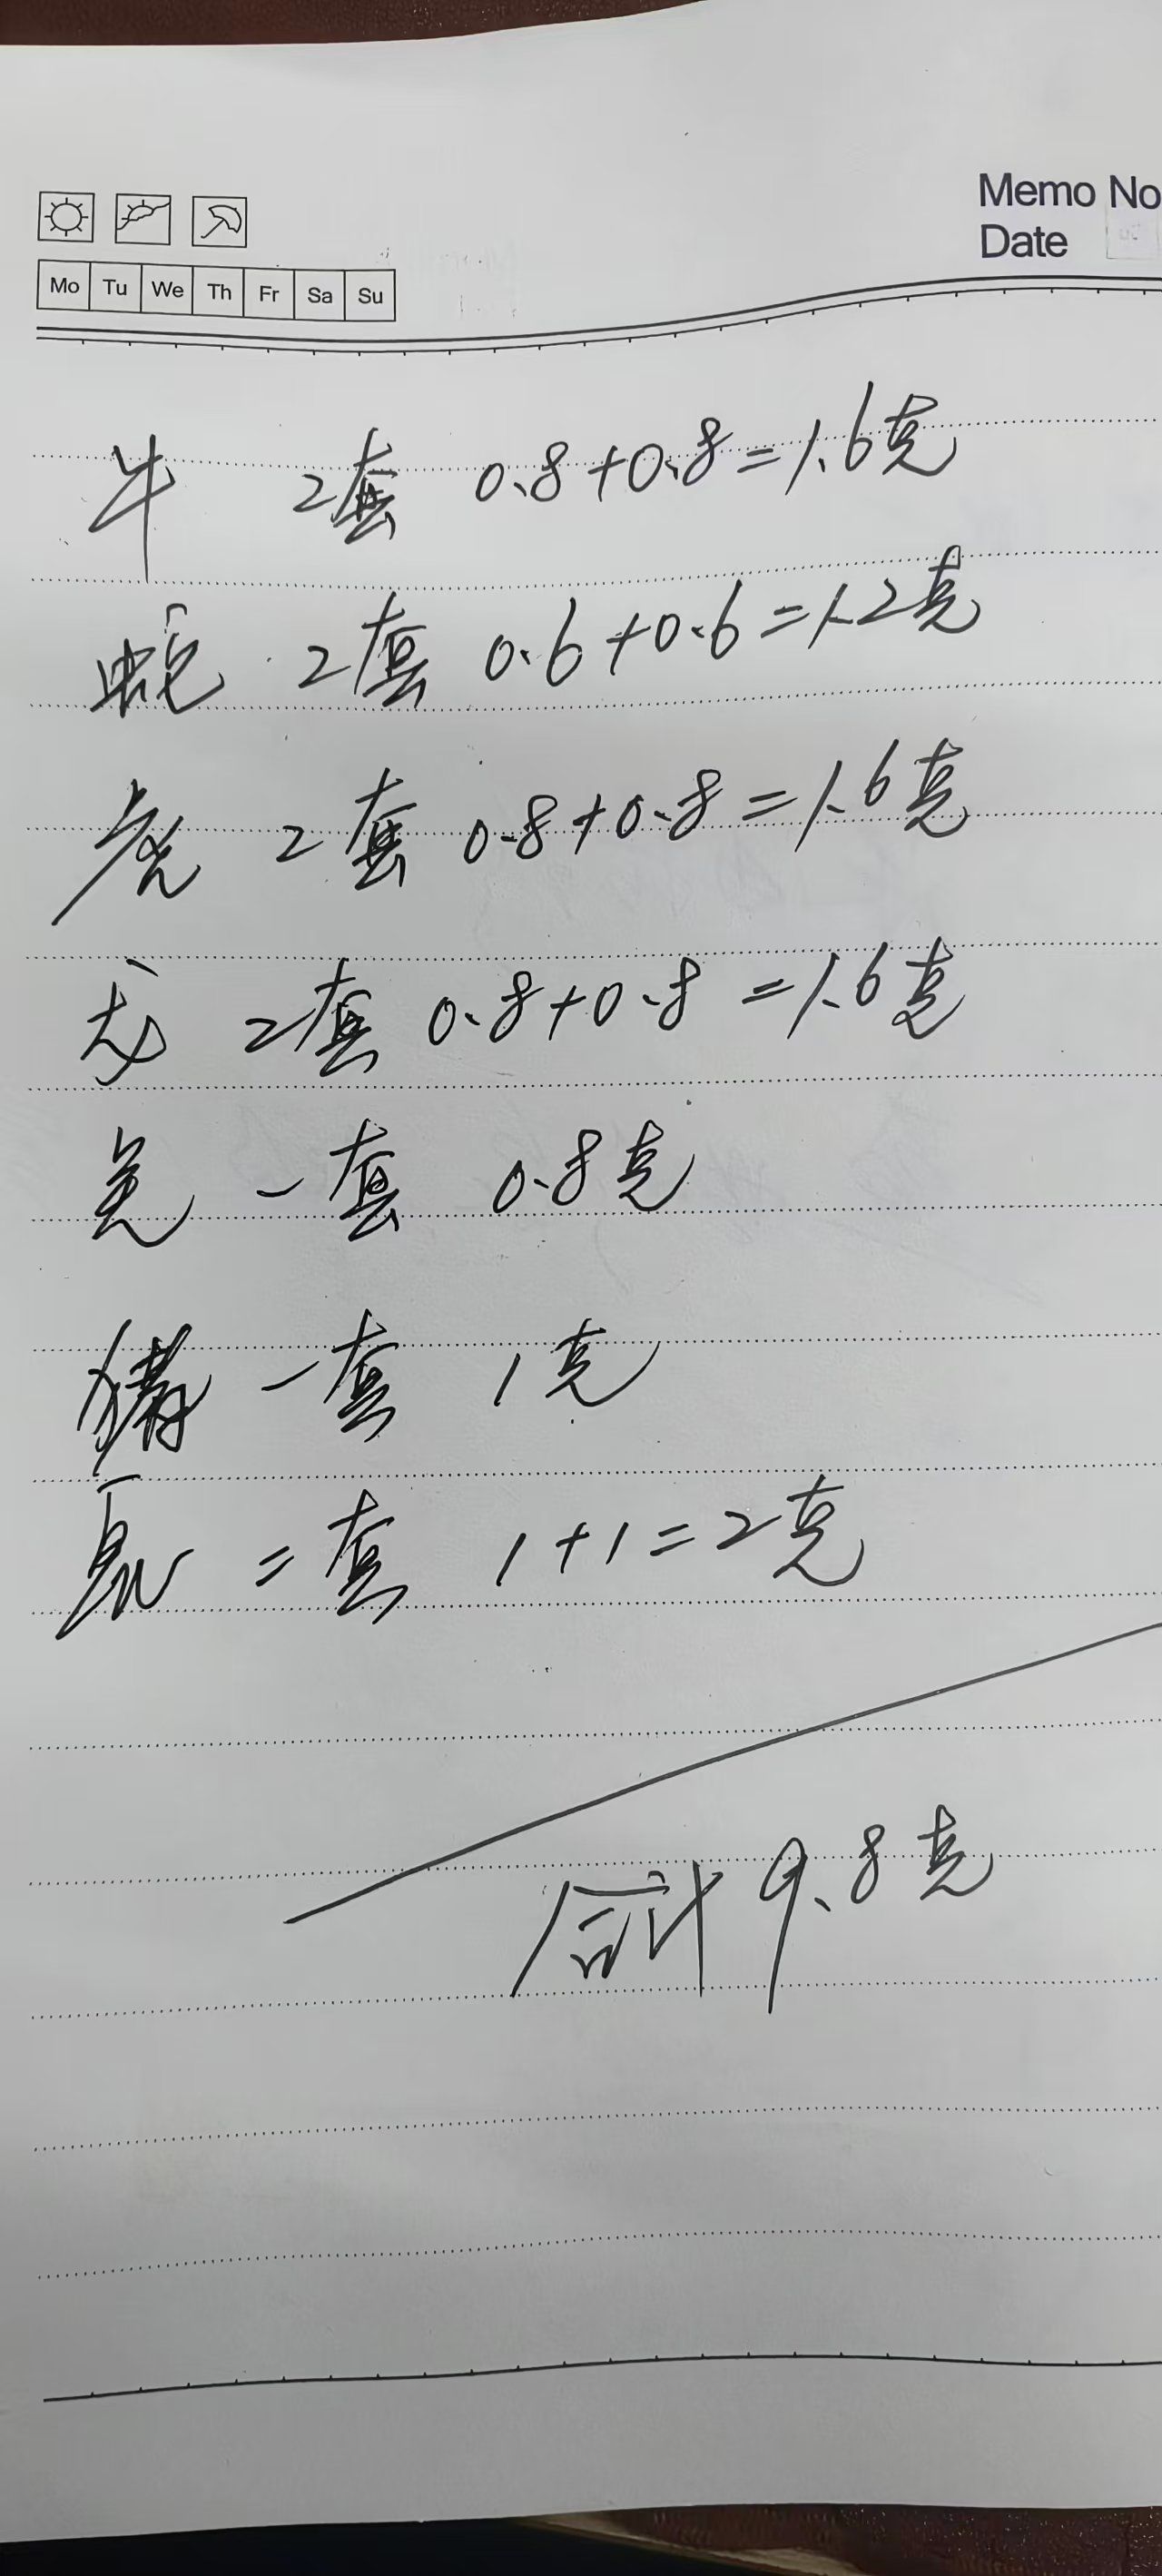 Memo No
Date
Mo Tu We Th Fr Sa Su
牛 2套 0.8+0.8=1.6克
蛇 2套 0.6+0.6=1.2克
虎 2套 0.8+0.8=1.6克
龙 2套 0.8+0.8=1.6克
兔 一套 0.8克
猪 一套 1克
鼠 二套 1+1=2克
合计 9.8克